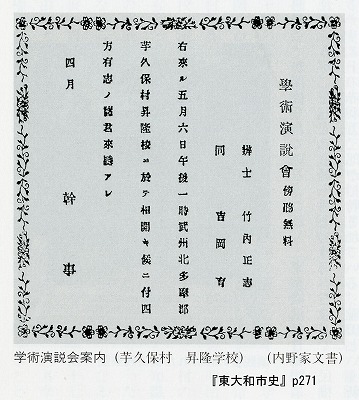 學術演說會 傍聽無料
辯士 竹内正志
同 吉岡育
右來ル五月六日午後一時武州北多摩郡
芋久保村昇隆校ニ於テ相開キ候ニ付四
方有志ノ諸君來聽アレ
四月 幹事
学術演説会案内（芋久保村 昇隆学校） （内野家文書）
『東大和市史』p271